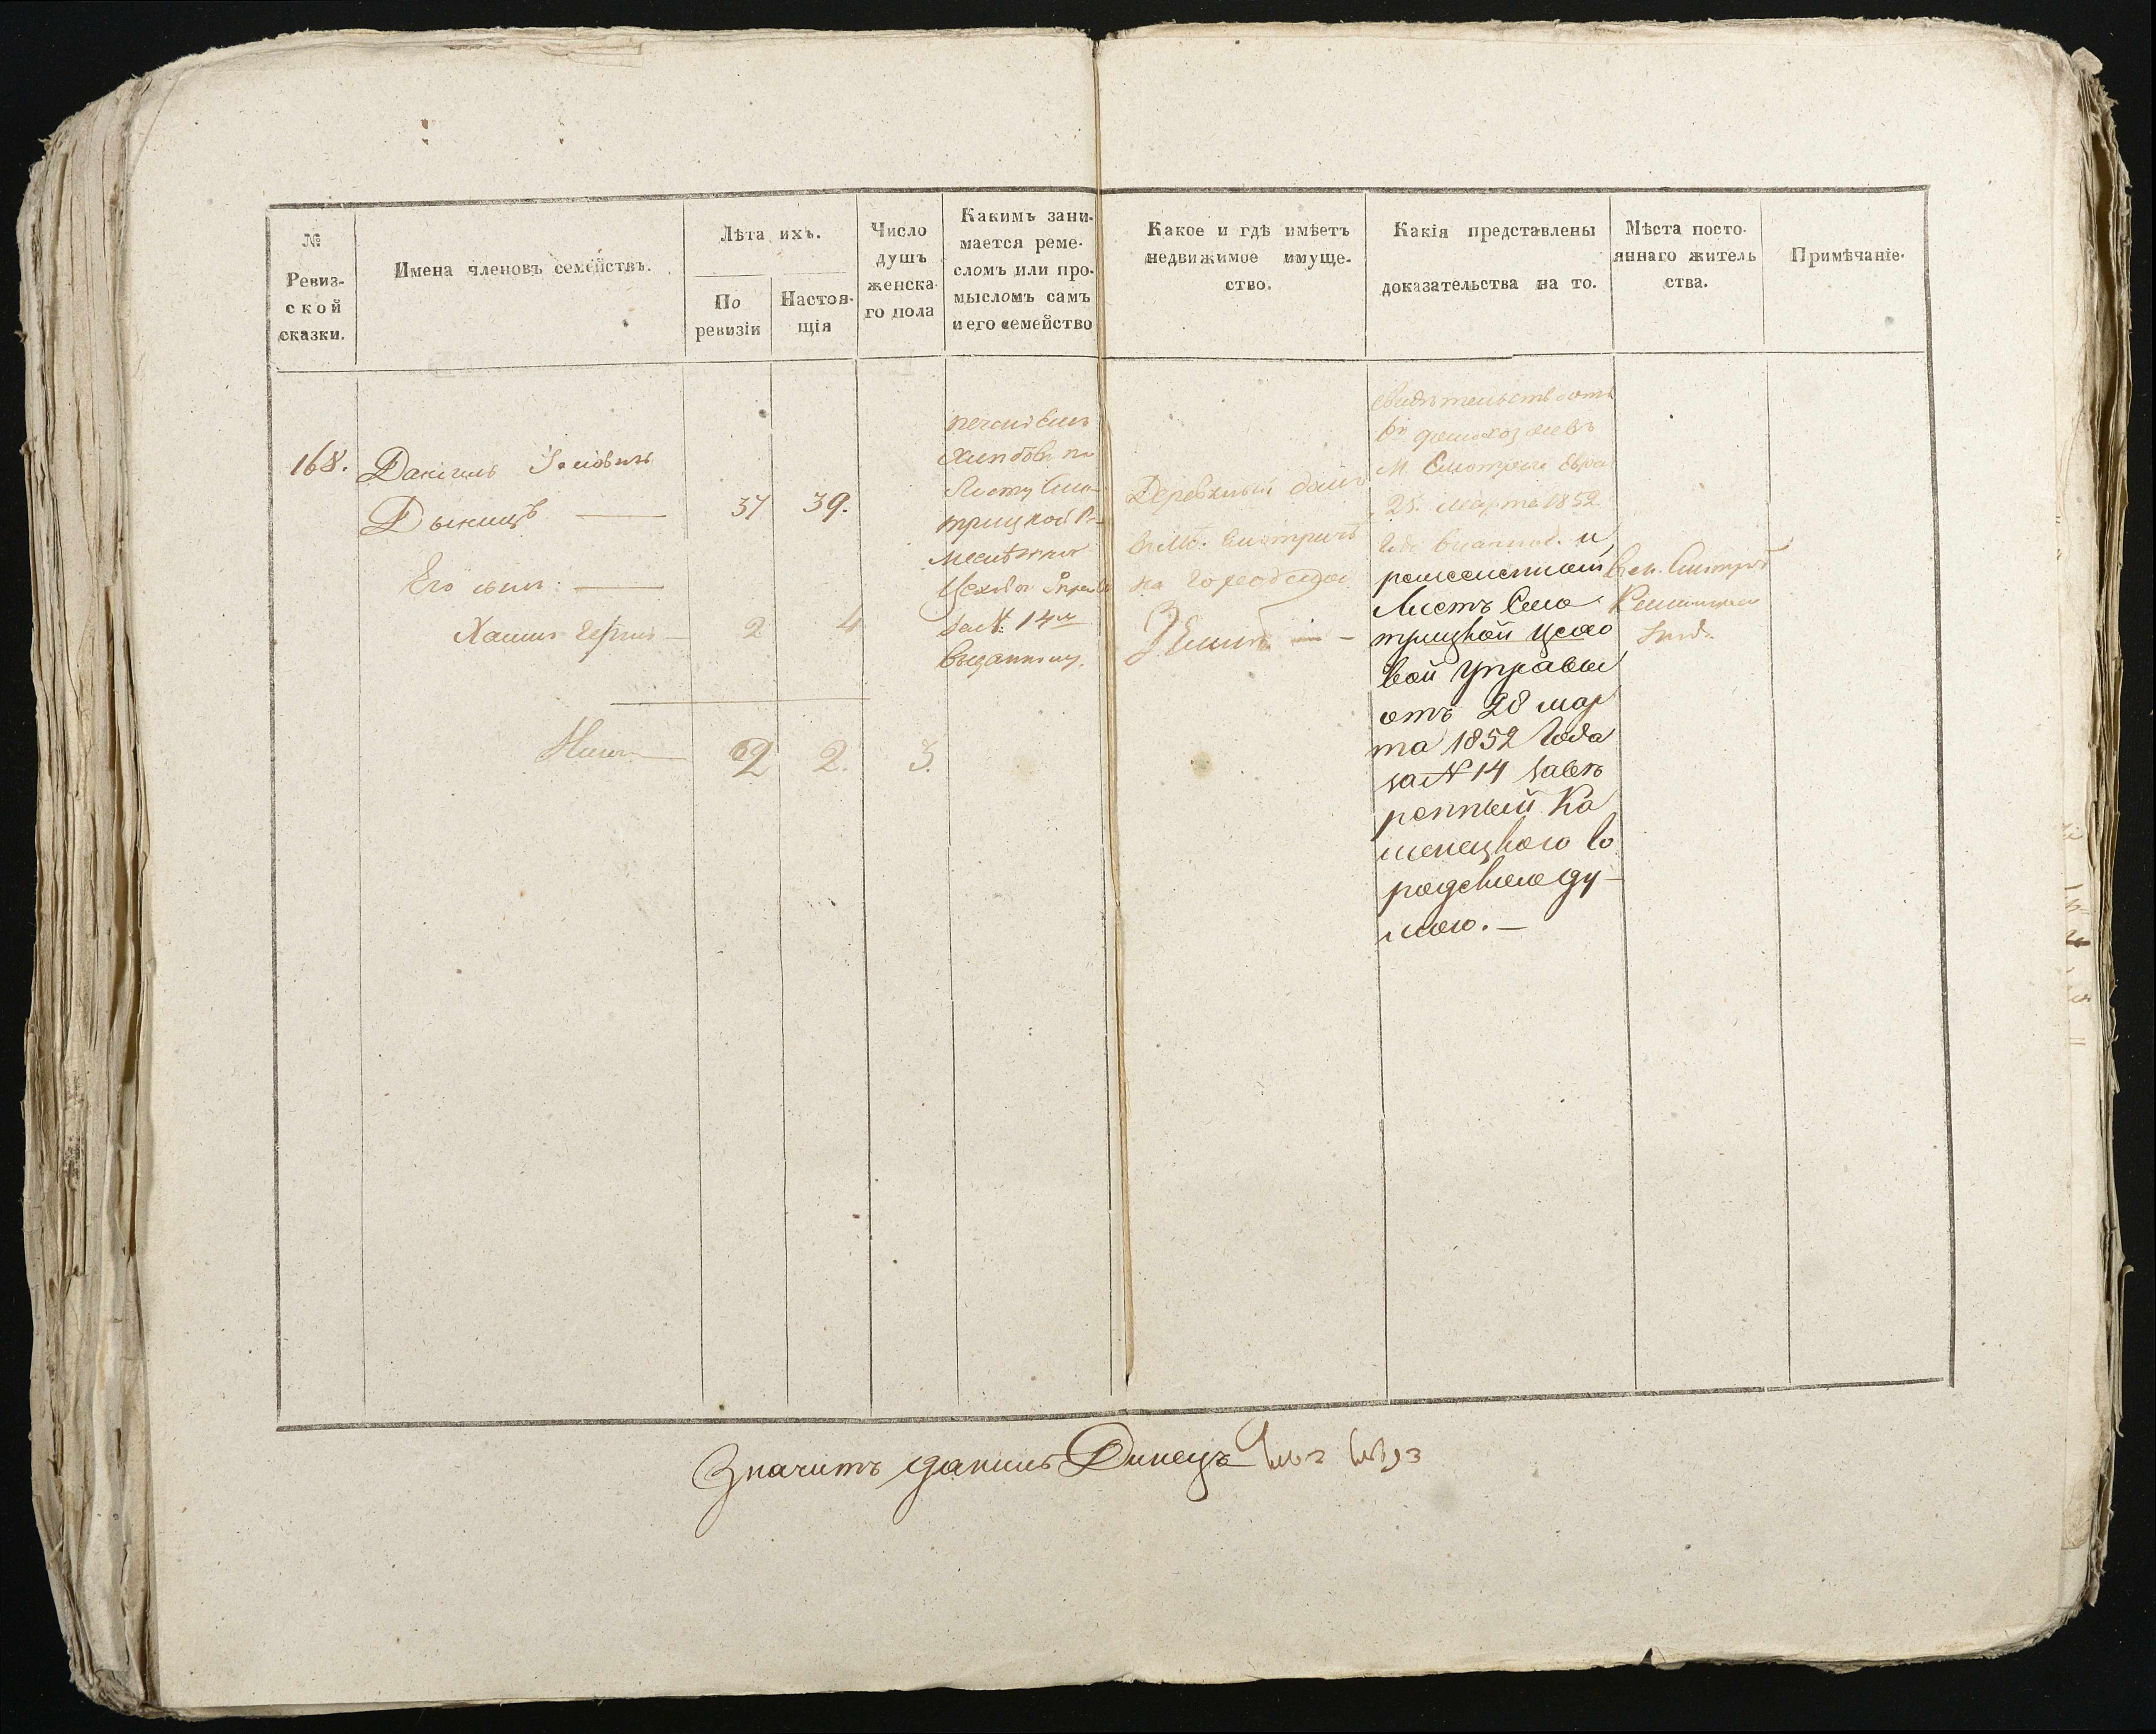 №
Ревиз-
ской
сказки.
Имена членовъ семействъ.
Лѣта ихъ.
По
ревизіи
Настоя-
щія
Число
душъ
женска-
го пола
Какимъ зани-
мается реме-
сломъ или про-
мысломъ самъ
и его семейство
Какое и гдѣ имѣетъ
недвижимое имуще-
ство.
Какія представлены
доказательства на то.
Мѣста посто-
яннаго житель
ства.
Примѣчаніе.
168.
Даніель
37 39.
Его сынъ:
Хаимъ 2 4
2 2. 3.
печеніемъ
хлѣбовъ по
Листу Смо-
трицкой Ре-
месленной
Цеховой Управы
за № 14м
выданному.
Деревянный домъ
въ м. Смотричѣ
на городской
Землѣ
Свидѣтельство отъ
6ти домохозяевъ
м. Смотрича
25. марта 1852
года и
ремесленный
Листъ Смо
трицкой цехо
вой Управы
отъ 28 мар
та 1852 года
за № 14 завѣ
ренный Ка
менецкою Го
родскою Ду-
мою. —
В м. Смотричѣ
Значитъ Даниль Динецъ